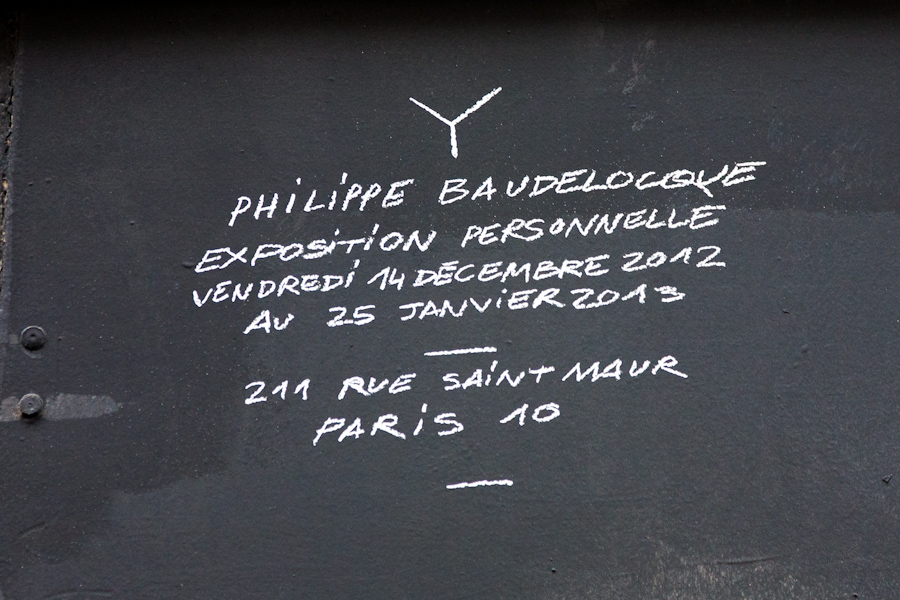 PHiLiPPE BAUDELOCQUE
EXPOSiTiON PERSONNELLE
VENDREDi 14 DÉCEMBRE 2012
AU 25 JANViER 2013
211 RUE SAiNT MAUR
PARiS 10